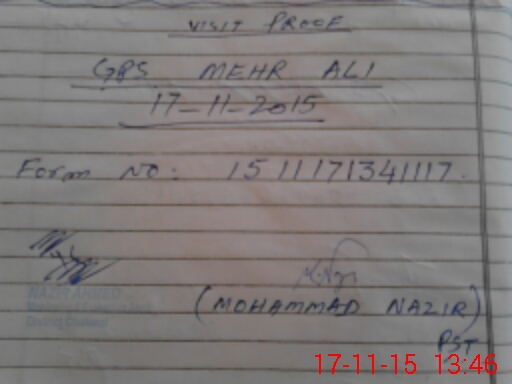 VISIT PROOF
GPS MEHR ALI
17-11-2015
Form NO: 15111171341117.
NAZIR AHMED
(MOHAMMAD NAZIR)
PST
17-11-15 13:46